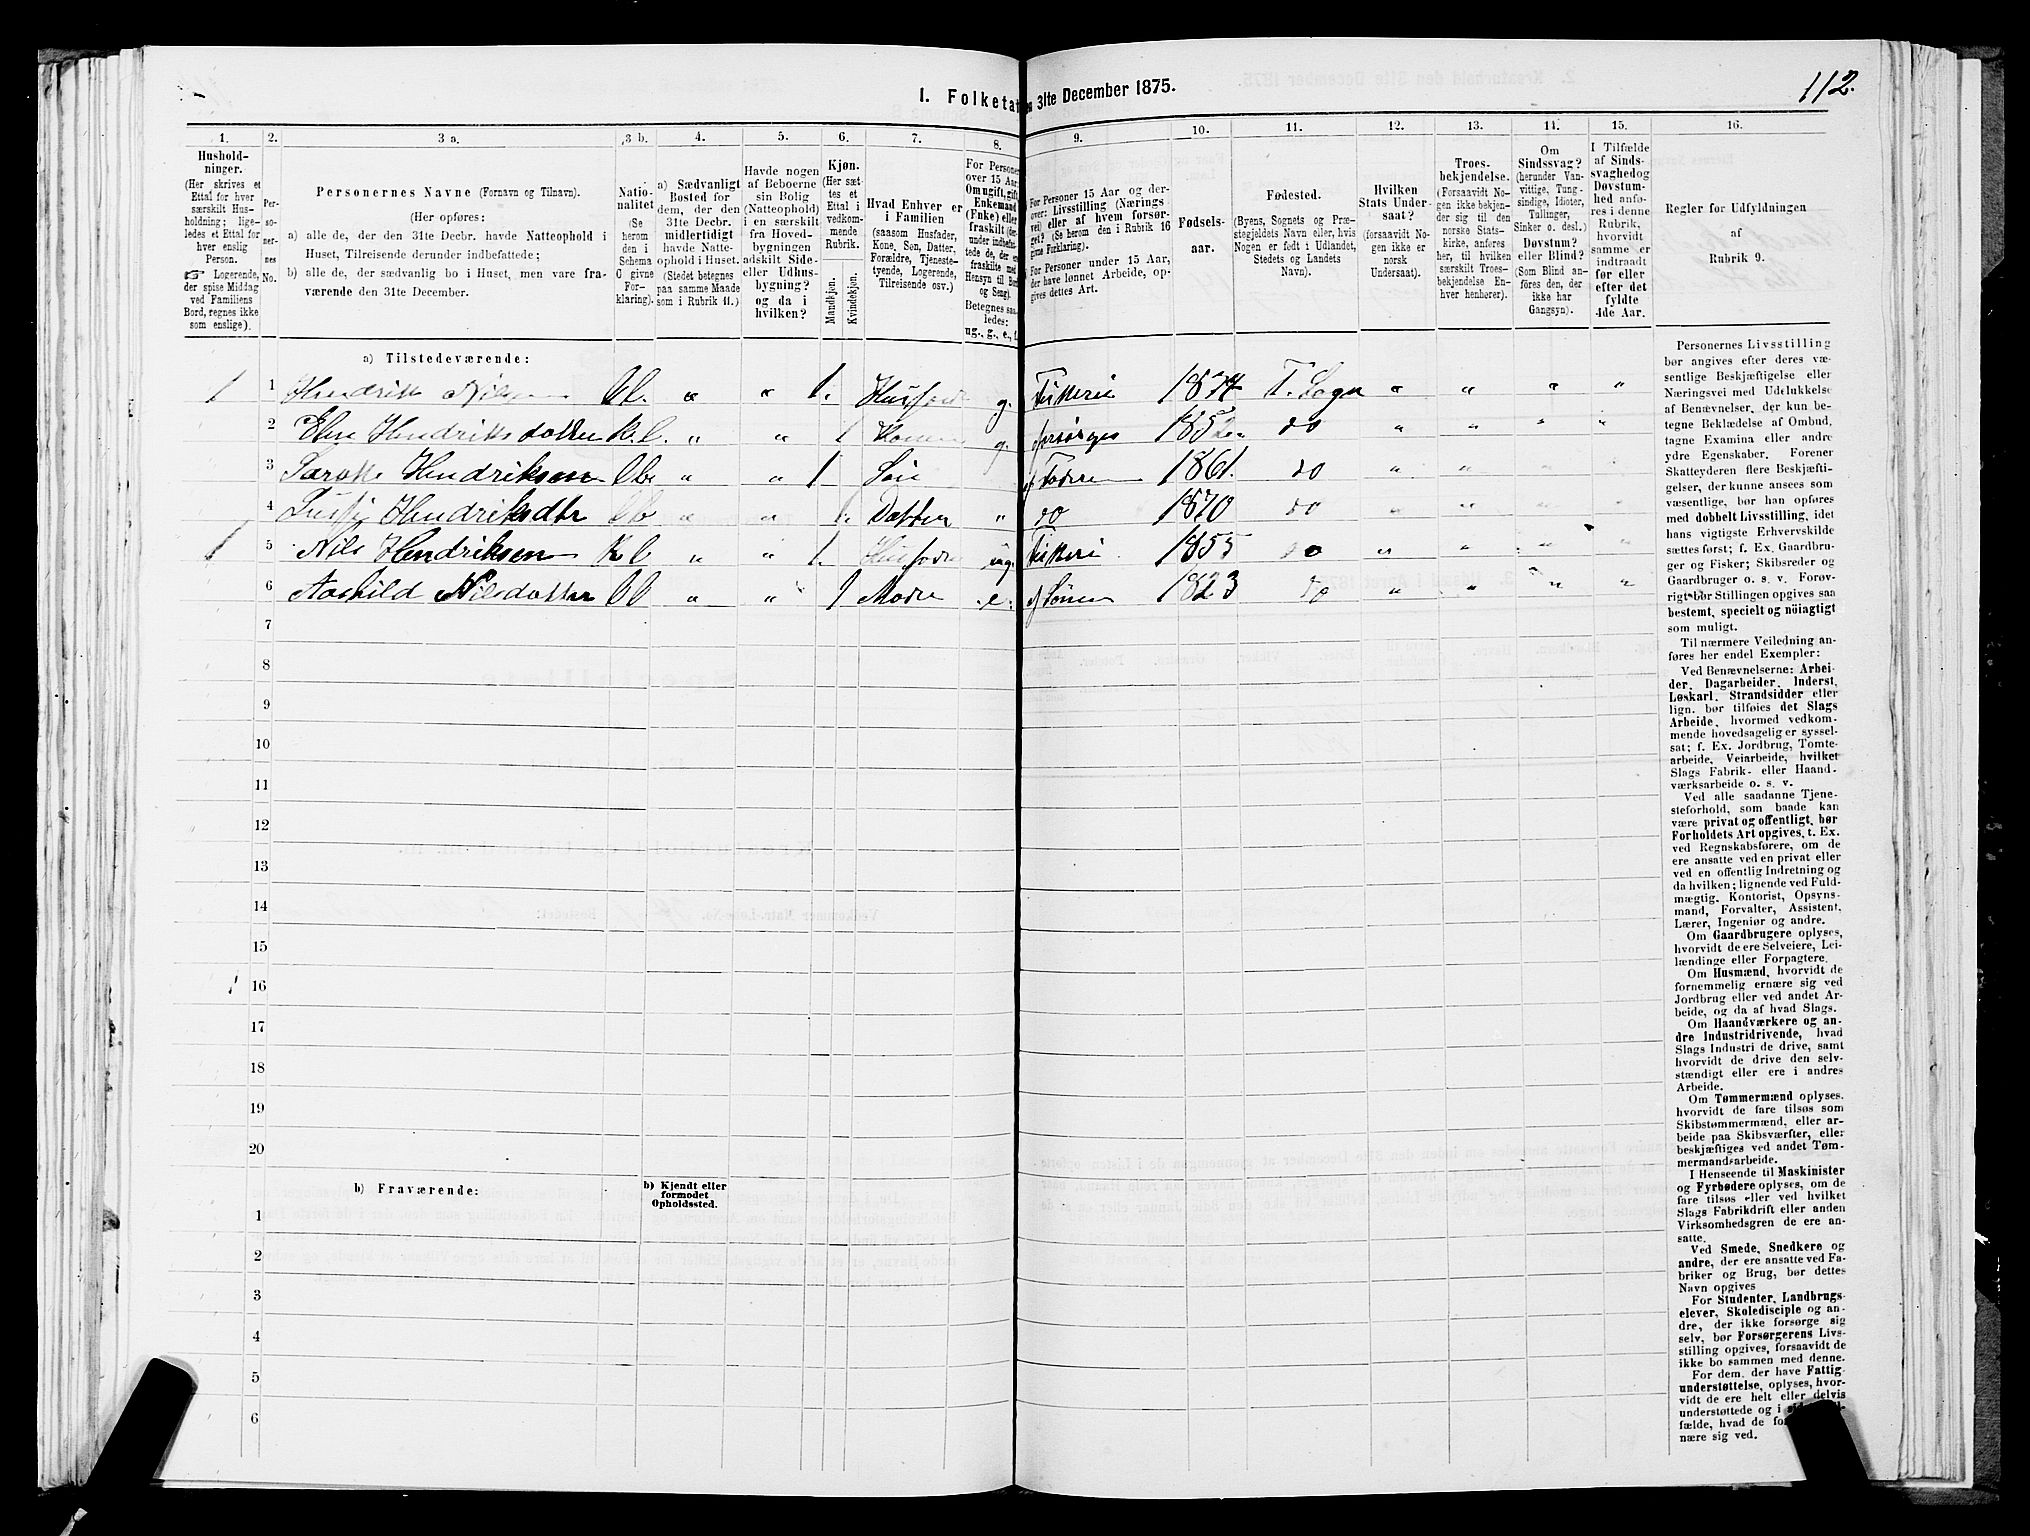 112.
1. Folketal den 31te December 1875.
1. 2. 3 a. 3 b. 4. 5. 6. 7. 8. 9. 10. 11. 12. 13. 14. 15. 16.
Husholdninger.
(Her skrives et
Ettal for hver
særskilt Husholdning; ligeledes et Ettal for
hver enslig
Person.
☞ Logerende,
der spise Middag
ved Familiens
Bord, regnes ikke
som enslige).
Personernes No.
Personernes Navne (Fornavn og Tilnavn).
(Her opføres:
a) alle de, der den 31te Decbr. havde Natteophold i
Huset, Tilreisende derunder indbefattede;
b) alle de, der sædvanlig bo i Huset, men vare fraværende den 31te December.
Nationalitet
(Se
herom
den i
Schema
C givne
Forklaring).
a) Sædvanligt
Bosted for
dem, der den
31te Decbr.
midlertidigt
havde Natteophold i Huset.
(Stedet betegnes
paa samme Maade
som i Rubrik 11.)
Havde nogen
af Beboerne
sin Bolig
(Natteophold)
i en særskilt
fra Hovedbygningen
adskilt Side-
eller Udhusbygning?
og da i
hvilken?
Kjøn.
(Her sættes et
Ettal i
vedkommende
Rubrik.
Mandkjøn.
Kvindekjøn.
Hvad Enhver er
i Familien
(saasom Husfader,
Kone, Søn, Datter,
Forældre, Tjenestetyende, Logerende,
Tilreisende osv.)
For Personer
over 15 Aar:
Om ugift, gift,
Enkemand
(Enke) eller
fraskilt
Betegnes saaledes:
ug., g., e., f.
For Personer 15 Aar og derover: Livsstilling (Næringsvei) eller af hvem forsørget? (Se herom den i Rubrik 16
givne Forklaring).
For Personer under 15 Aar,
der have lønnet Arbeide, opgives dettes Art.
Fødselsaar.
Fødested.
(Byens, Sognets og Præstegjeldets Navn eller, hvis
Nogen er født i Udlandet,
Stedets og Landets
Navn).
Hvilken
Stats Undersaat?
(forsaavidt Nogen ikke er
norsk
Undersaat).
Troesbekjendelse.
(Forsaavidt Nogen ikke bekjender sig til den
norske Statskirke, anføres
her, til hvilken
særskilt Troesbekjendelse Enhver henhører).
Om
Sindssvag?
(herunder Vanvittige, Tungsindige, Idioter,
Tullinger,
Sinker o. desl.)
Døvstum?
eller Blind?
(Som Blind anføres den, der
ikke har
Gangsyn).
I Tilfælde
af Sindssvaghed og
Døvstumhed anføres i denne
Rubrik,
hvorvidt
samme er
indtraadt
før eller
efter det
fyldte
4de Aar.
Regler for Udfyldningen
af
Rubrik 9.
a) Tilstedeværende:
1 1 Hendrik Nilsen lb. " " 1. Husfader g. Fiskeri 1834 T. Sogn " " " "
2 Elen Hendriksdatter k.l. " " 1 Konen g. forsørges 185 do " " " "
3 Hendriksen lb. " " 1 Søn af Fadere 1861. do " " " "
4 Hendriksdtr lb " " 1. Datter " do 1870 do " " " "
1 5 Nils Hendriksen k l " " 1. Husfader ug. Fiskeri 1855 do " " " "
6 Aashild Nilsdatter lb " " 1 Modre e. af Sønen 1823 do " " " "
7
8
9
10
11
12
13
14
15
1 16
17
18
19
20
b) Fraværende:
b) Kjendt eller
formodet
Opholdssted.
1
2
3
4
5
6
Personernes Livsstilling
bør angives efter deres væsentlige Beskjæftigelse eller
Næringsvei med Udelukkelse
af Benævnelser, der kun betegne Beklædelse af Ombud,
tagne Examina eller andre
ydre Egenskaber. Forener
Skatteyderen flere Beskjæftigelser, der kunne ansees som
væsentlige, bør han opføres
med dobbelt Livsstilling, idet
hans vigtigste Erhvervskilde
sættes først; f. Ex. Gaardbruger og Fisker; Skibsreder og
Gaardbruger o. s. v. Forøvrigt bør Stillingen opgives saa
bestemt, specielt og nöiagtigt
som muligt.
Til nærmere Veiledning anføres her endel Exempler:
Ved Benævnelserne: Arbeider, Dagarbeider, Inderst,
Løskarl, Strandsidder eller
lign. bør tilføies det Slags
Arbeide, hvormed vedkommende hovedsagelig er sysselsat; f. Ex. Jordbrug, Tomtearbeide, Veiarbeide, hvilket
Slags Fabrik- eller Haandværksarbeide o. s. v.
Ved alle saadanne Tjenesteforhold, som baade kan
være privat og offentligt, bør
Forholdets Art opgives, t. Ex.
ved Regnskabsførere, om de
ere ansatte ved en privat eller
ved en offentlig Indretning og
da hvilken; lignende ved Fuldmægtig, Kontorist, Opsynsmand, Forvalter, Assistent,
Lærer, Ingeniør og andre.
Om Gaardbrugere oplyses,
hvorvidt de ere Selveiere, Leilændinge eller Forpagtere.
Om Husmænd, hvorvidt de
fornemmelig ernære sig ved
Jordbrug eller ved andet Arbeide, og da af hvad Slags.
Om Haandværkere og andre Industridrivende, hvad
Slags Industri de drive, samt
hvorvidt de drive den selvstændigt eller ere i andres
Arbeide.
Om Tømmermænd oplyses,
hvorvidt de fare tilsøs som
Skibstømmermænd, eller arbeide paa Skibsværfter, eller
beskjæftiges ved andet Tømmermandsarbeide.
I Henseende til Maskinister
og Fyrbødere oplyses, om de
fare tilsøs eller ved hvilket
Slags Fabrikdrift eller anden
Virksomhedsgren de ere ansatte.
Ved Smede, Snedkere og
andre, der ere ansatte ved Fabriker og Brug, bør dettes
Navn opgives
For Studenter, Landbrugselever, Skoledisciple og andre, der ikke forsørge sig
selv, bør Forsørgerens Livsstilling opgives, forsaavidt de
ikke bo sammen med denne.
For dem, der have Fattigunderstøttelse, oplyses, hvorvidt de ere helt eller delvis
understøttede og i
fælde, hvad de
nære sig ved.